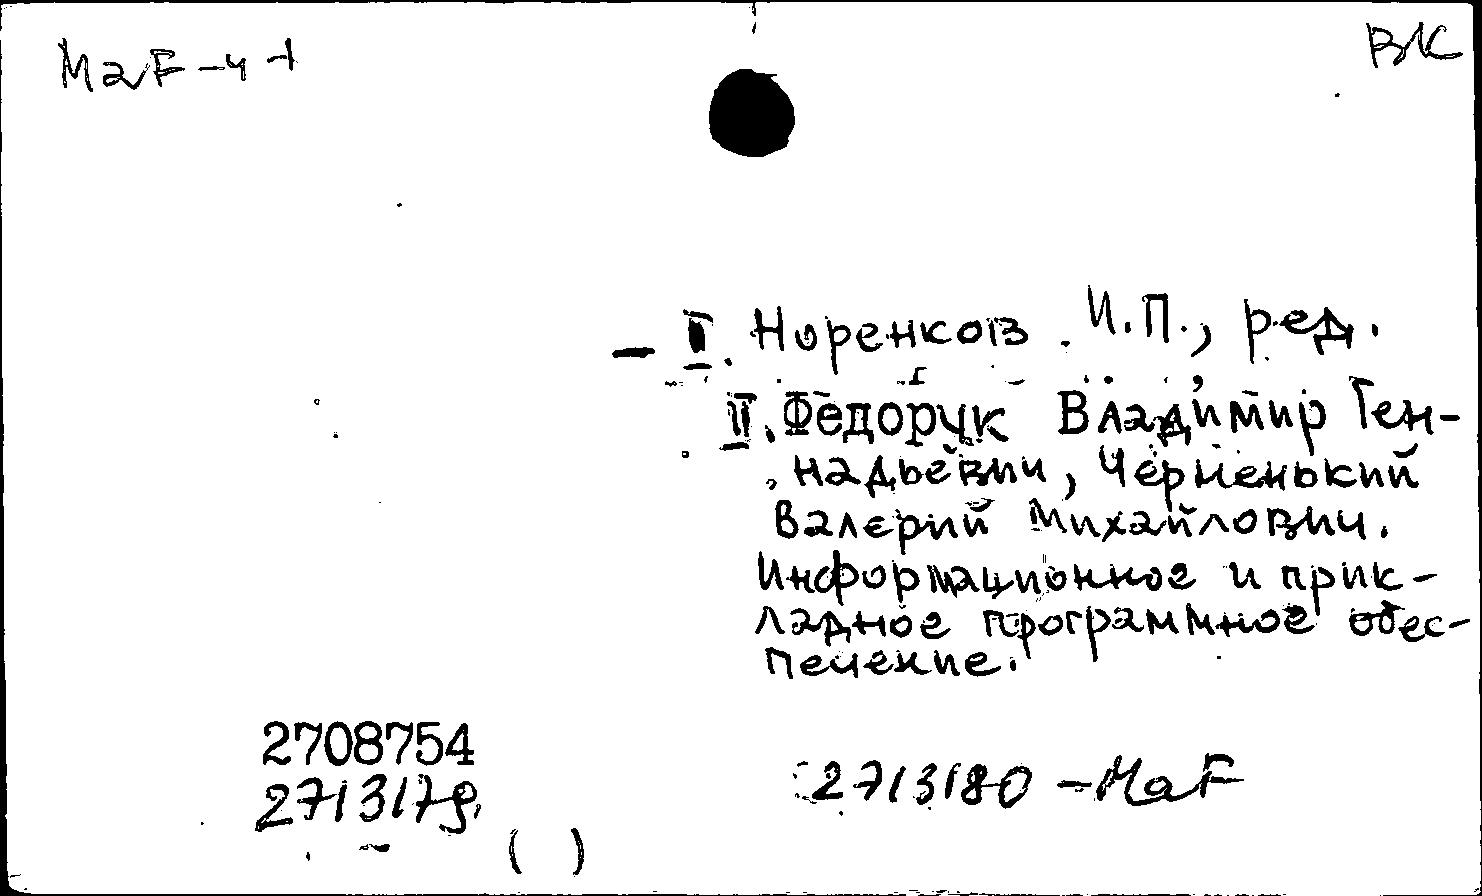 MaF-4+
ВК
- I. Норенков И.П., ред.
II. Федорук Владимир Ген-
надьевич, Черненький
Валерий Михайлович.
Информационное и прик-
ладное программное обес-
печение.
2708754
2713179
2713180 - MaF
( )